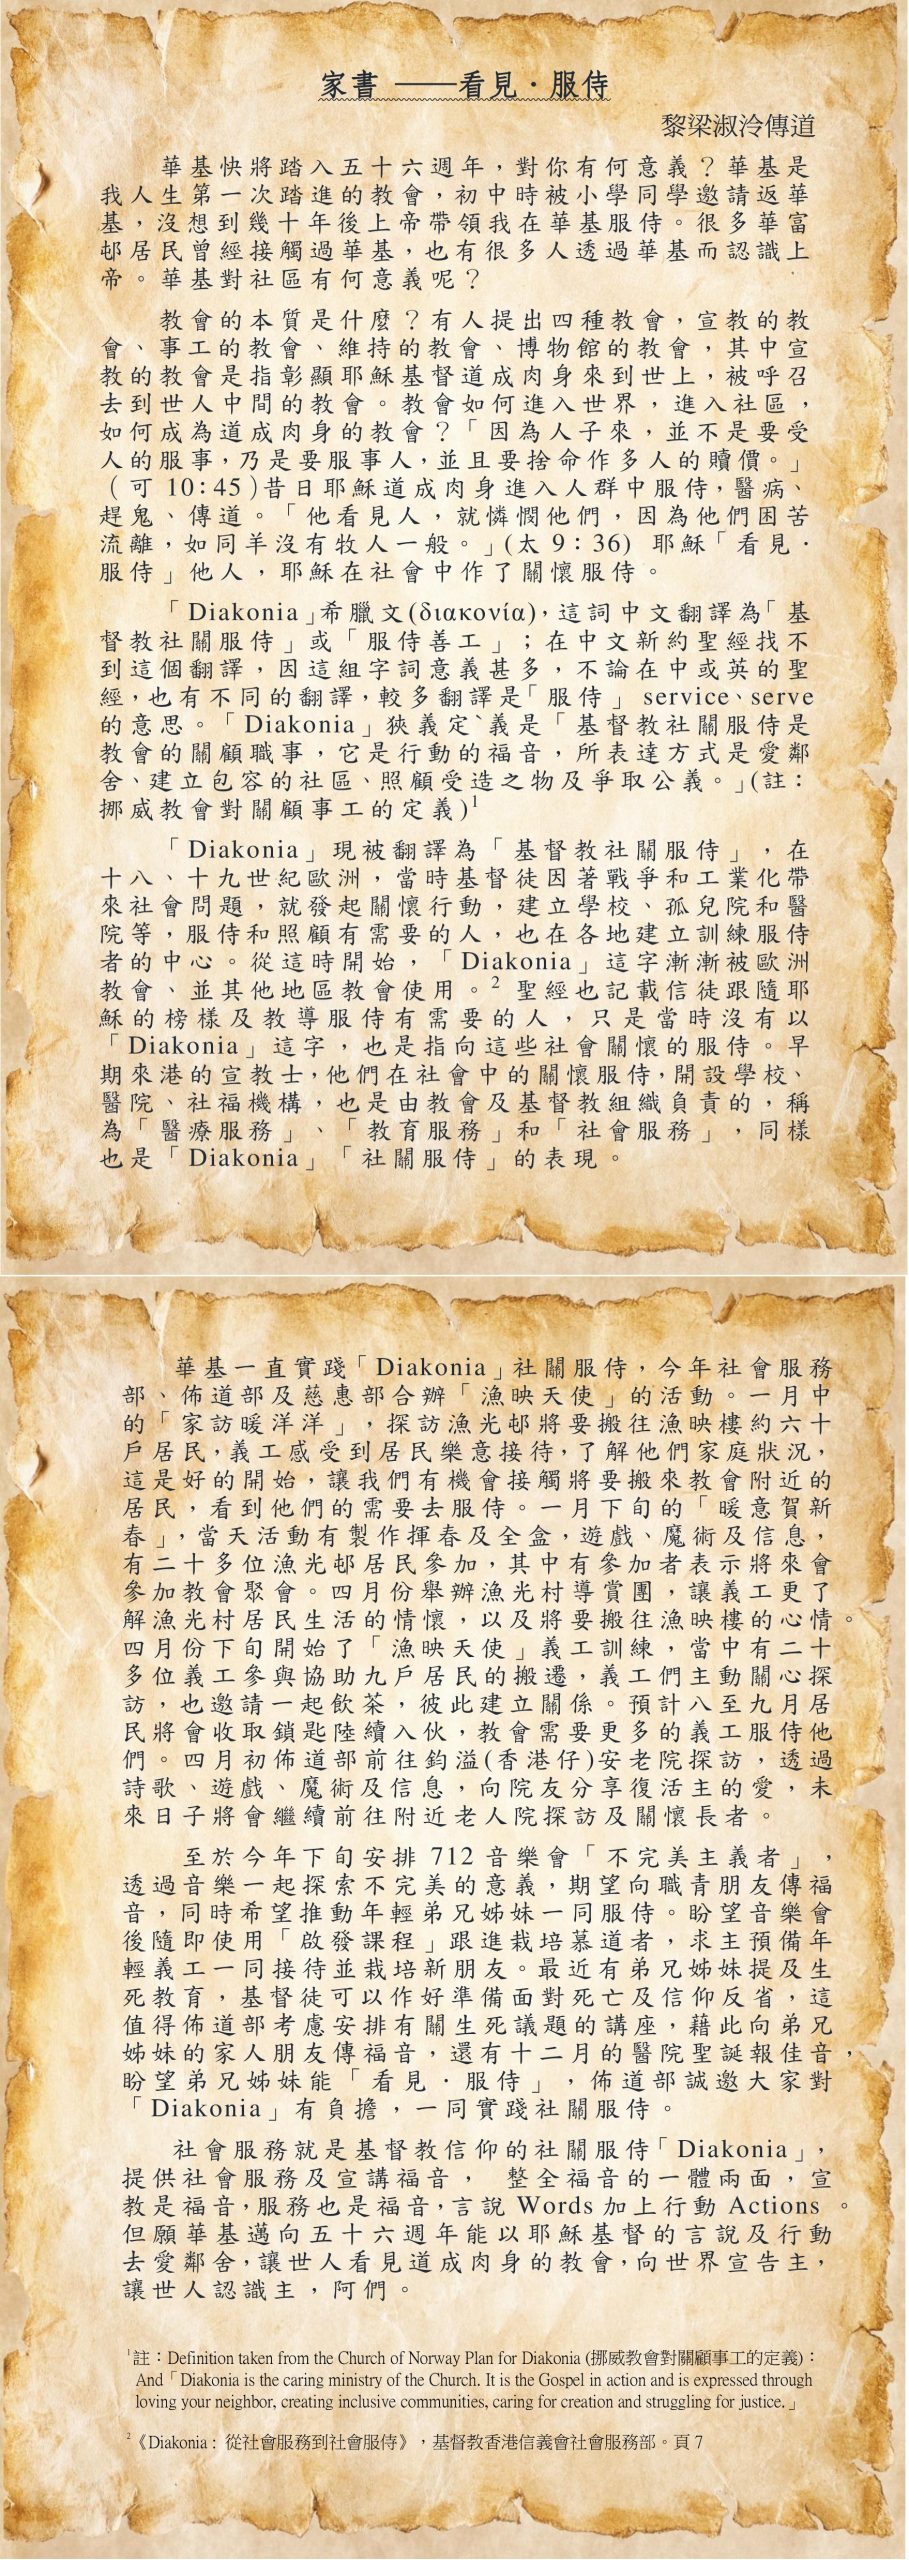 家書 ——看見．服侍
黎梁淑泠傳道
華基快將踏入五十六週年，對你有何意義？華基是
我人生第一次踏進的教會，初中時被小學同學邀請返華
基，沒想到幾十年後上帝帶領我在華基服侍。很多華富
邨居民曾經接觸過華基，也有很多人透過華基而認識上
帝。華基對社區有何意義呢？
教會的本質是什麼？有人提出四種教會，宣教的教
會、事工的教會、維持的教會、博物館的教會，其中宣
教的教會是指彰顯耶穌基督道成肉身來到世上，被呼召
去到世人中間的教會。教會如何進入世界，進入社區，
如何成為道成肉身的教會？「因為人子來，並不是要受
人的服事，乃是要服事人，並且要捨命作多人的贖價。」
（可 10：45）昔日耶穌道成肉身進入人群中服侍，醫病、
趕鬼、傳道。「他看見人，就憐憫他們，因為他們困苦
流離，如同羊沒有牧人一般。」(太 9：36) 耶穌「看見．
服侍」他人，耶穌在社會中作了關懷服侍。
「Diakonia」希臘文(διακονία)，這詞中文翻譯為「基
督教社關服侍」或「服侍善工」；在中文新約聖經找不
到這個翻譯，因這組字詞意義甚多，不論在中或英的聖
經，也有不同的翻譯，較多翻譯是「服侍」 service、serve
的意思。「Diakonia」狹義定ˋ義是「基督教社關服侍是
教會的關顧職事，它是行動的福音，所表達方式是愛鄰
舍、建立包容的社區、照顧受造之物及爭取公義。」(註：
挪威教會對關顧事工的定義)1
「Diakonia」現被翻譯為「基督教社關服侍」，在
十八、十九世紀歐洲，當時基督徒因著戰爭和工業化帶
來社會問題，就發起關懷行動，建立學校、孤兒院和醫
院等，服侍和照顧有需要的人，也在各地建立訓練服侍
者的中心。從這時開始，「Diakonia」這字漸漸被歐洲
教會、並其他地區教會使用。2 聖經也記載信徒跟隨耶
穌的榜樣及教導服侍有需要的人，只是當時沒有以
「Diakonia」這字，也是指向這些社會關懷的服侍。早
期來港的宣教士，他們在社會中的關懷服侍，開設學校、
醫院、社福機構，也是由教會及基督教組織負責的，稱
為「醫療服務」、「教育服務」和「社會服務」，同樣
也是「Diakonia」「社關服侍」的表現。
華基一直實踐「Diakonia」社關服侍，今年社會服務
部、佈道部及慈惠部合辦「漁映天使」的活動。一月中
的「家訪暖洋洋」，探訪漁光邨將要搬往漁映樓約六十
戶居民，義工感受到居民樂意接待，了解他們家庭狀況，
這是好的開始，讓我們有機會接觸將要搬來教會附近的
居民，看到他們的需要去服侍。一月下旬的「暖意賀新
春」，當天活動有製作揮春及全盒，遊戲、魔術及信息，
有二十多位漁光邨居民參加，其中有參加者表示將來會
參加教會聚會。四月份舉辦漁光村導賞團，讓義工更了
解漁光村居民生活的情懷，以及將要搬往漁映樓的心情。
四月份下旬開始了「漁映天使」義工訓練，當中有二十
多位義工參與協助九戶居民的搬遷，義工們主動關心探
訪，也邀請一起飲茶，彼此建立關係。預計八至九月居
民將會收取鎖匙陸續入伙，教會需要更多的義工服侍他
們。四月初佈道部前往鈞溢(香港仔)安老院探訪，透過
詩歌、遊戲、魔術及信息，向院友分享復活主的愛，未
來日子將會繼續前往附近老人院探訪及關懷長者。
至於今年下旬安排 712 音樂會「不完美主義者」，
透過音樂一起探索不完美的意義，期望向職青朋友傳福
音，同時希望推動年輕弟兄姊妹一同服侍。盼望音樂會
後隨即使用「啟發課程」跟進栽培慕道者，求主預備年
輕義工一同接待並栽培新朋友。最近有弟兄姊妹提及生
死教育，基督徒可以作好準備面對死亡及信仰反省，這
值得佈道部考慮安排有關生死議題的講座，藉此向弟兄
姊妹的家人朋友傳福音，還有十二月的醫院聖誕報佳音，
盼望弟兄姊妹能「看見．服侍」，佈道部誠邀大家對
「Diakonia」有負擔，一同實踐社關服侍。
社會服務就是基督教信仰的社關服侍「Diakonia」，
提供社會服務及宣講福音， 整全福音的一體兩面，宣
教是福音，服務也是福音，言說 Words 加上行動 Actions 。
但願華基邁向五十六週年能以耶穌基督的言說及行動
去愛鄰舍，讓世人看見道成肉身的教會，向世界宣告主，
讓世人認識主，阿們。
1註：Definition taken from the Church of Norway Plan for Diakonia (挪威教會對關顧事工的定義)：
And「Diakonia is the caring ministry of the Church. It is the Gospel in action and is expressed through
loving your neighbor, creating inclusive communities, caring for creation and struggling for justice.」
2《Diakonia : 從社會服務到社會服侍》，基督教香港信義會社會服務部。頁 7